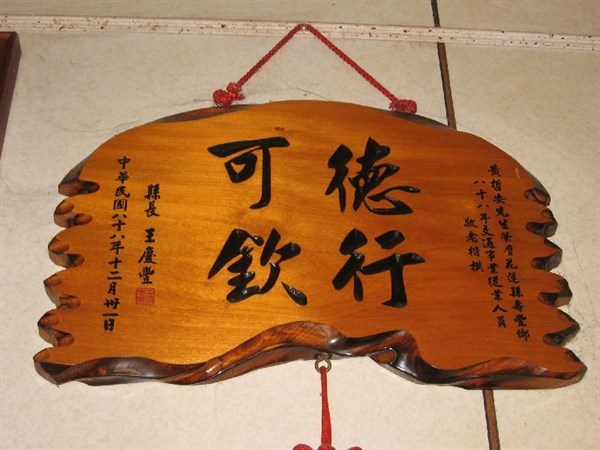 黃哲安先生榮膺花蓮縣壽豐鄉
八十八年交通事業從業人員
敬老楷模
德行
可欽
縣長 王慶豐
中華民國八十八年十二月卅一日